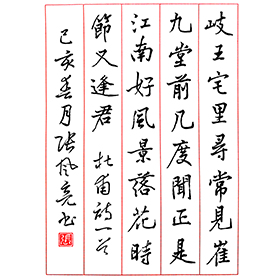 岐王宅里尋常見崔
九堂前几度聞正是
江南好風景落花時
節又逢君 杜甫詩一首
己亥春月張風亮书